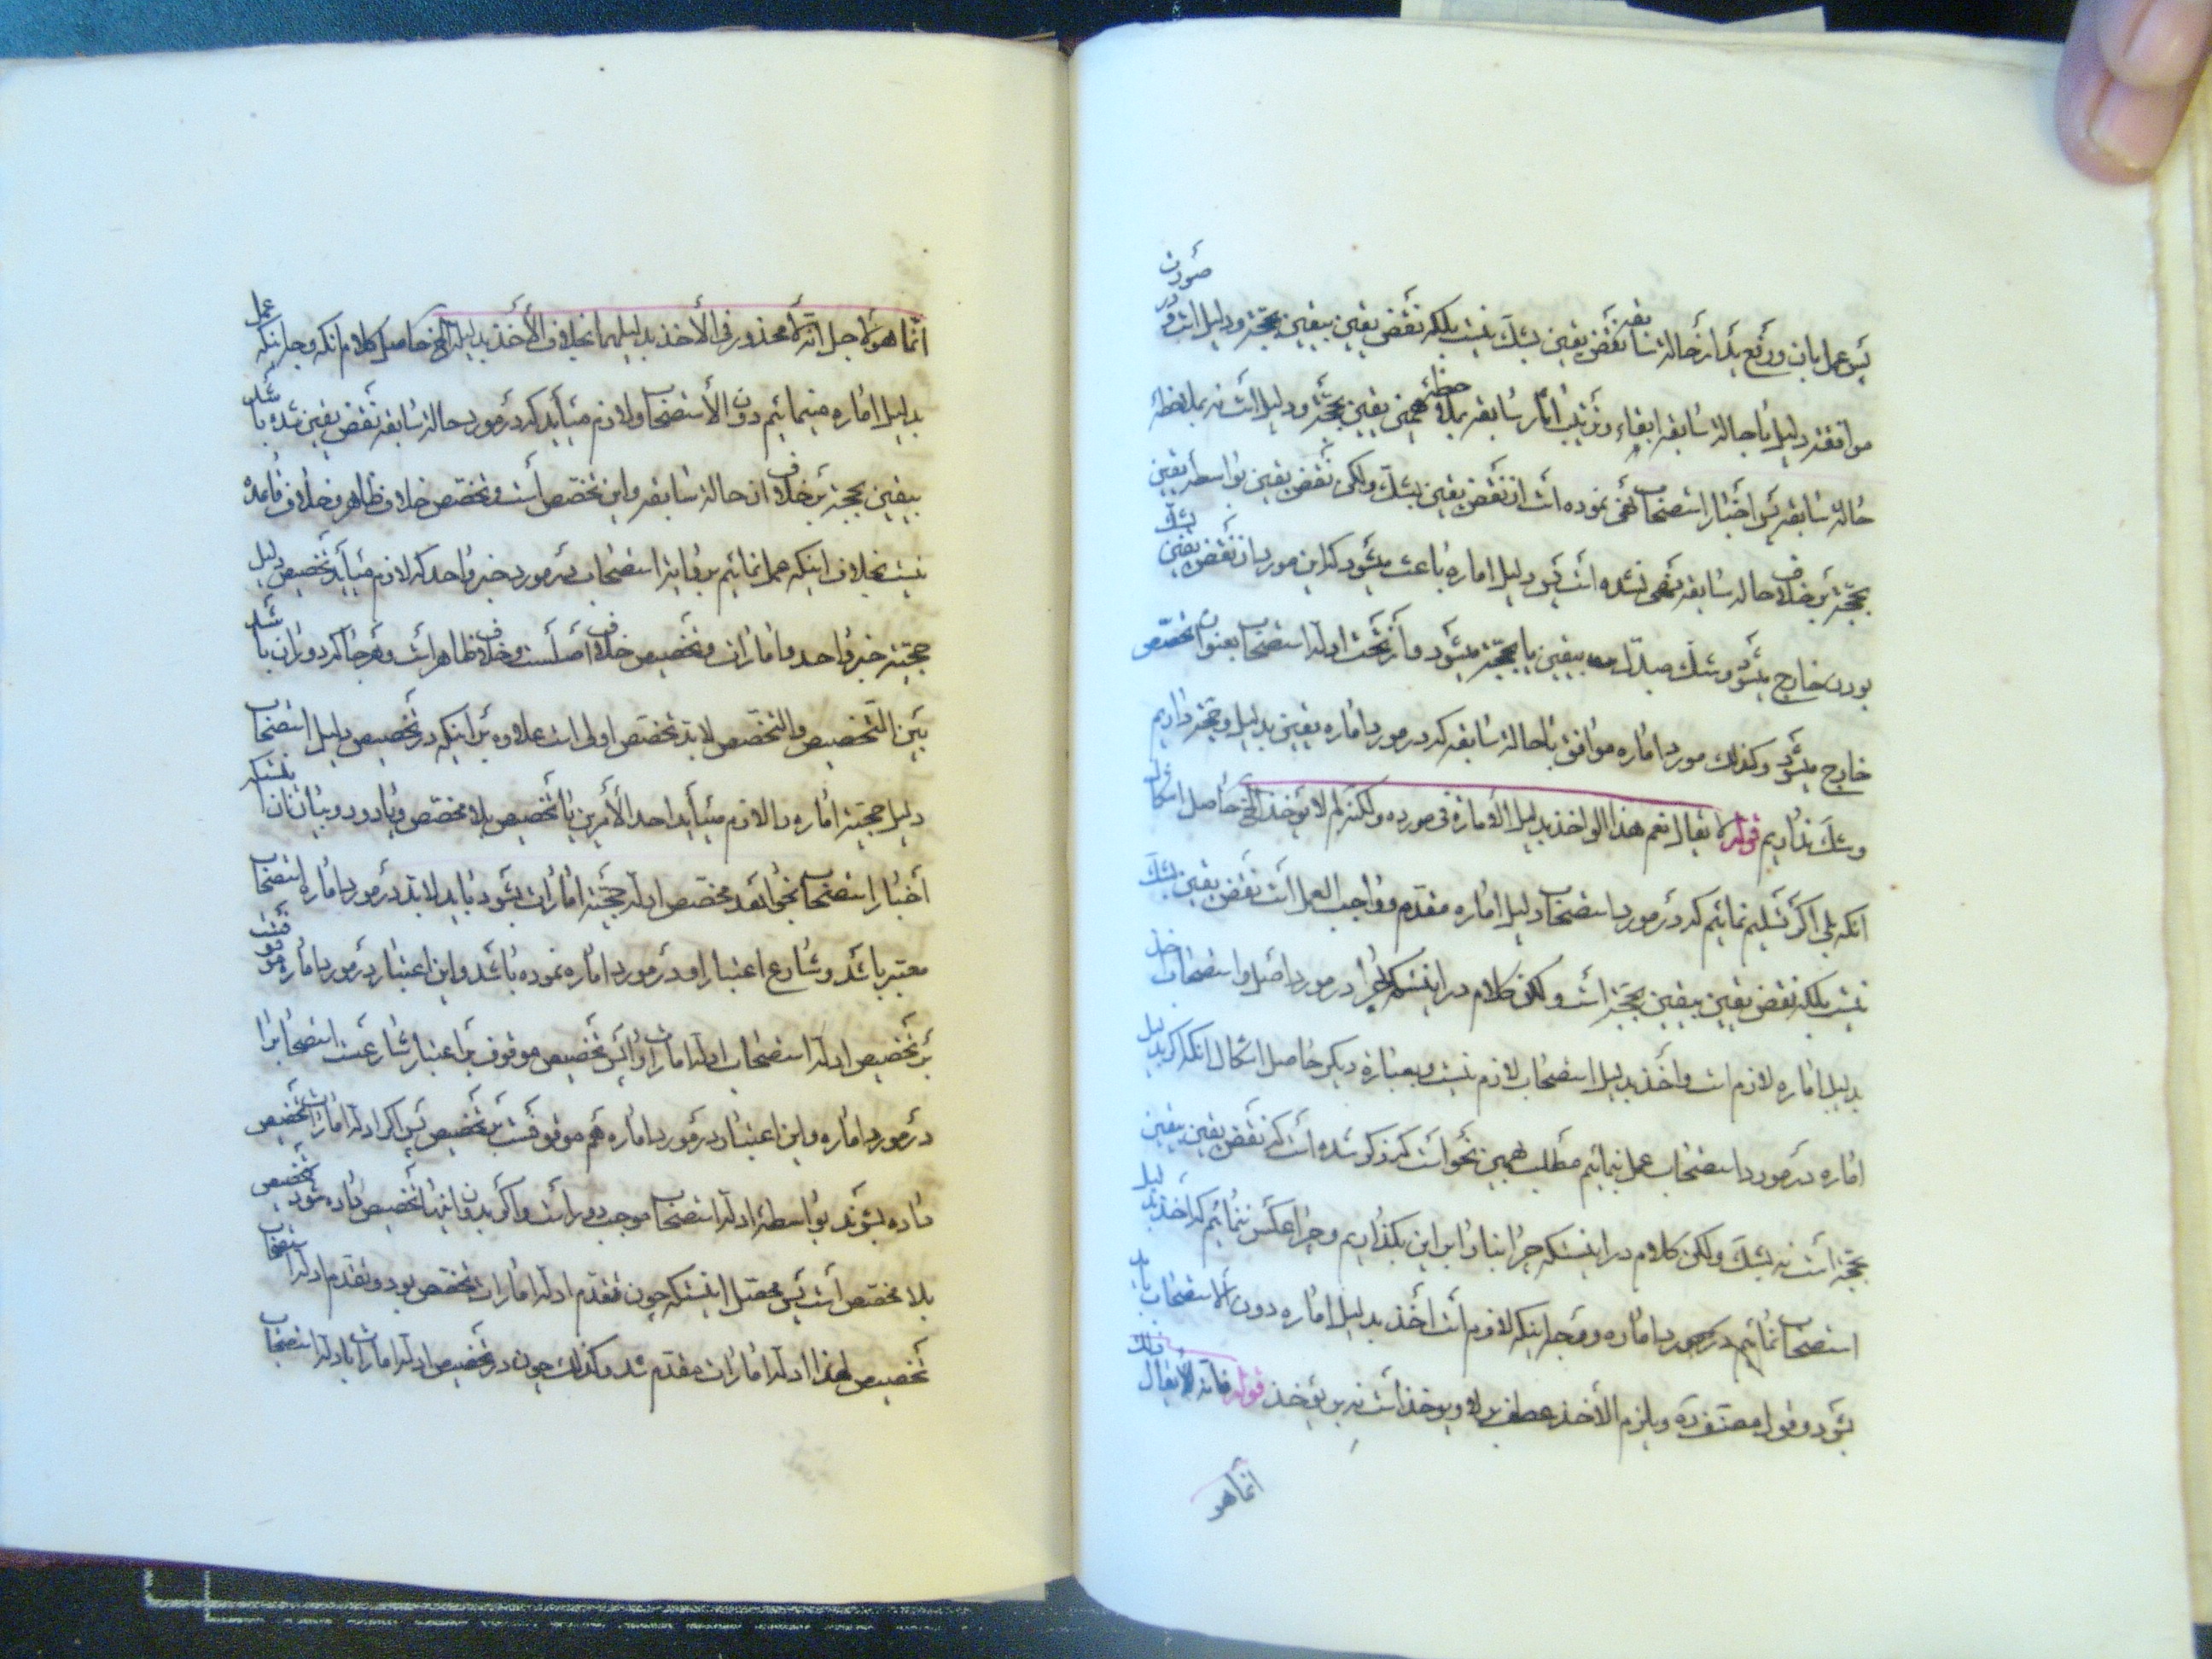 پس عمل بان و رفع ید از حالة سابقه نقض یقین بشک نیست بلکه نقض یقین بیقین بحجة و دلیل است و در صورت
موافقة دلیل با حالة سابقه ابقاء و ترتیب اثار سابقه بملاحظه همین یقین بحجة و دلیل است نه بملاحظه
حالة سابقه پس اخبار استصحاب نهی نموده است از نقض یقین بشک ولکن نقض یقین بواسطه یقین
بحجة بر خلاف حاله سابقه نهی نشده است پس دلیل اماره باعث میشود که این مورد از نقض یقین بشک
بودن خارج میشود و شک مبدل بیقین بالحجة میشود و از تحت ادله استصحاب بعنوان تخصص
خارج میشود و کذلک مورد اماره موافق با حالة سابقه که در مورد اماره یقین بدلیل و حجة داریم
و شک نداریم قوله لا یقال نعم هذا لو اخذ بدلیل الامارة فی مورده ولکنه لم لا یؤخذ الخ حاصل اشکال
انکه بلی اگر تسلیم نمائیم که در مورد استصحاب دلیل اماره مقدم و واجب العمل است نقض یقین بشک
نیست بلکه نقض یقین بیقین بحجة است ولکن کلام در اینستکه چرا در مورد اصل و استصحاب اخذ
بدلیل اماره لازم است و اخذ بدلیل استصحاب لازم نیست و بعبارة دیگر حاصل اشکال انکه اگر بدلیل
اماره در مورد استصحاب عمل نمائیم مطلب همین نحو است که ذکر شده است که نقض یقین بیقین
بحجة است نه بشک ولکن کلام در اینستکه چرا بنا را بر این بگذاریم و چرا عکس ننمائیم که اخذ بدلیل
استصحاب نمائیم در مورد اماره و وجه اینکه لازم است اخذ بدلیل اماره دون الاستصحاب باید
بشود و قول مصنف ره و یلزم الاخذ عطف بر لا یوخذ است نه بر یؤخذ قوله فانه لا یقال ذلک
انما هو
انما هو لاجل انه لا محذور فی الأخذ بدلیلهما بخلاف الأخذ بدلیله الخ حاصل کلام انکه وجه اینکه عمل
بدلیل اماره مینمائیم دون الأستصحاب ولازم میاید که در مورد حالة سابقه نقض یقین شده باشد
بیقین بحجة بر خلاف ان حالة سابقه و این تخصص است و تخصص خلاف ظاهر و خلاف قاعده
نیست بخلاف اینکه عمل نمائیم بروایة استصحاب در مورد خبر واحد که لازم میاید تخصیص دلیل
حجیة خبر واحد و امارات و تخصیص خلاف اصلست و خلاف ظاهر است و هر جا که دوران باشد
بین التخصیص والتخصص لابد تخصص اولی است علاوه بر اینکه در تخصیص دلیل استصحاب
دلیل حجیة اماره را لازم میاید احد الأمرین یا تخصیص بلا مخصص و یا دور و بیان ان اینستکه
اخبار استصحاب بخواهد مخصص ادله حجیة امارات بشود باید لابد در مورد اماره استصحاب
معتبر باشد و شارع اعتبار او در مورد اماره نموده باشد و این اعتبار در مورد اماره موقوفست
بر تخصیص ادله استصحاب ادله امارات را و این تخصیص موقوف بر اعتبار شارعست استصحابرا
در مورد اماره و این اعتبار در مورد اماره هم موقوفست بر تخصیص پس اگر ادله امارات تخصیص
داده بشوند بواسطه ادله استصحاب موجب دور است و اگر بدون اینها تخصیص داده شود تخصیص
بلا مخصص است پس محصل اینستکه چون تقدم ادله امارات تخصص بود و تقدم ادله استصحاب
تخصیص لهذا ادله امارات مقدم شد و کذلک چون در تخصیص ادله امارات بادله استصحاب